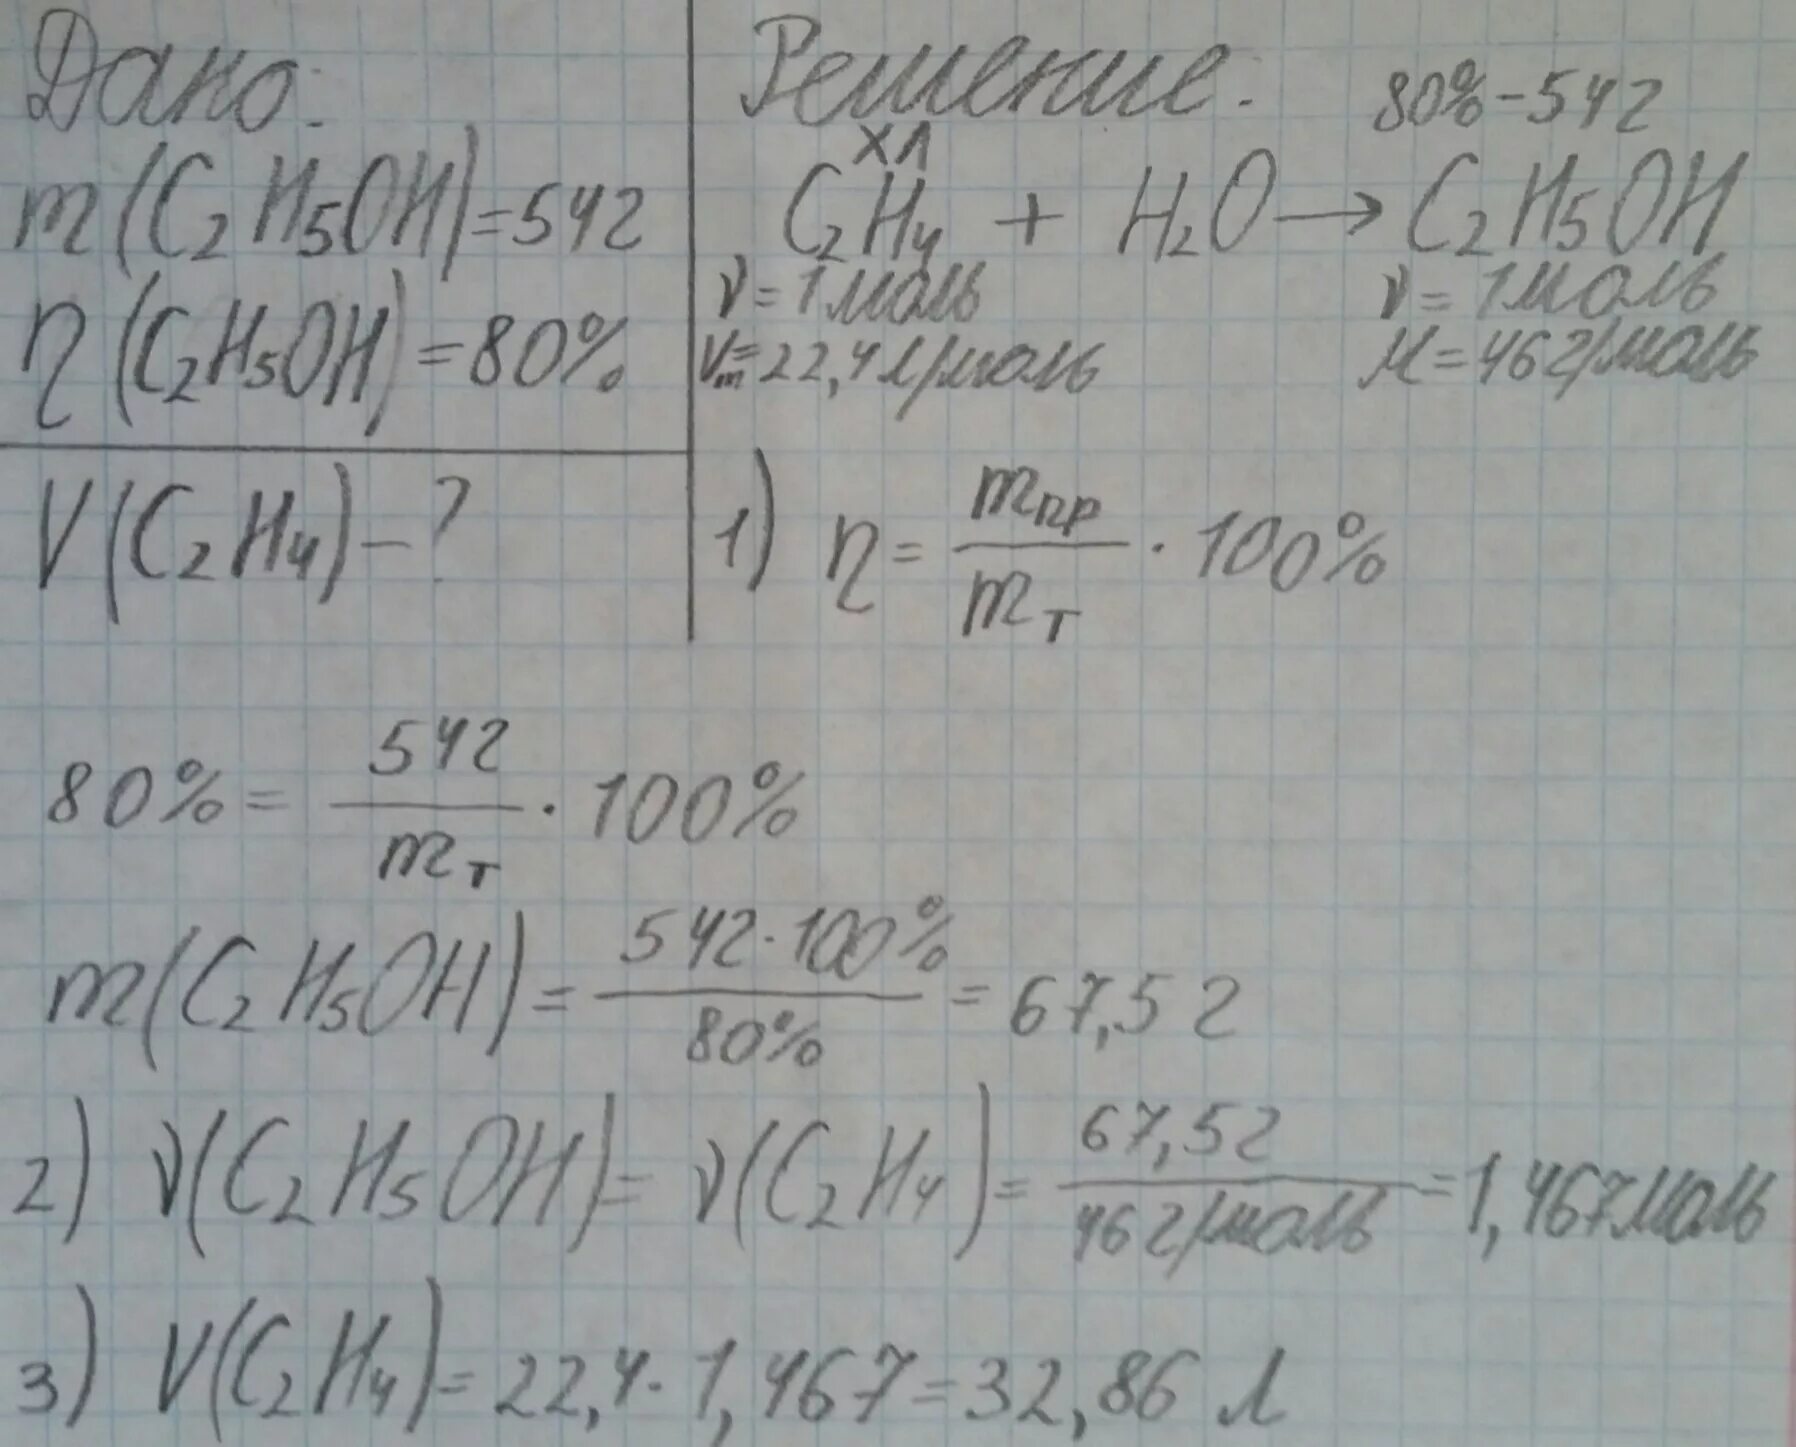 Дано:
m(C₂H₅OH)=54г
η(C₂H₅OH)=80%
V(C₂H₄)-?
Решение.
80%-54г
xл
C₂H₄ + H₂O → C₂H₅OH
ν=1моль ν=1моль
Vₘ=22,4л/моль M=46г/моль
1) η = mпр/mт · 100%
80% = 54г/mт · 100%
m(C₂H₅OH) = 54г·100%/80% = 67,5г
2) ν(C₂H₅OH) = ν(C₂H₄) = 67,5г/46г/моль = 1,467моль
3) V(C₂H₄) = 22,4·1,467 = 32,86 л